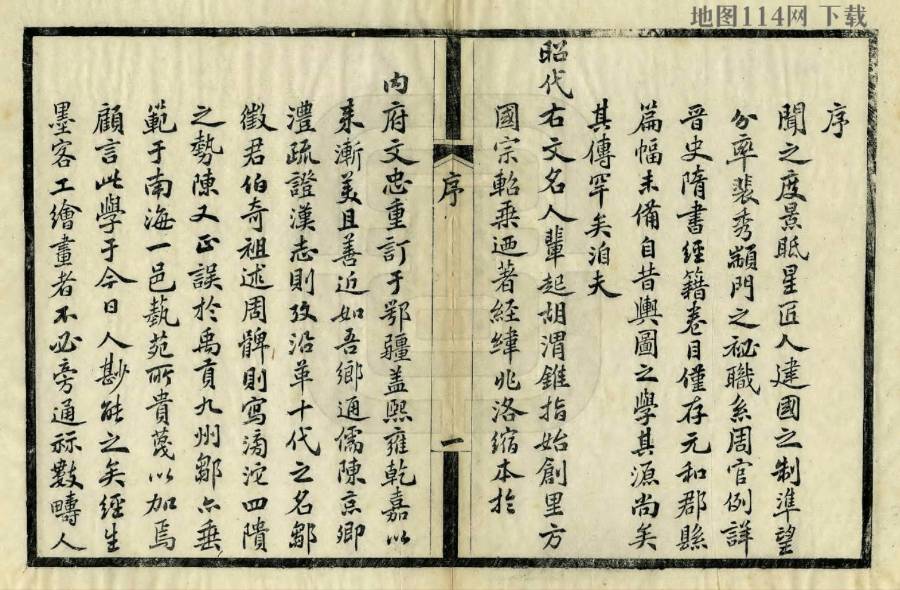 地图114网 下载
序
聞之度景眂星匠人建國之制準望
分率裴秀顓門之祕職系周官例詳
晉史隋書經籍卷目僅存元和郡縣
篇幅未備自昔輿圖之學其源尚矣
其傳罕矣洎夫
昭代右文名人輩起胡渭錐指始創里方
國宗軺乗迺著経緯兆洛縮本於
序 一
内府文忠重訂于鄂疆盖熙雍乾嘉以
来漸美且善近如吾鄉通儒陳京卿
澧疏證漢志則攷沿革十代之名鄒
徵君伯奇祖述周髀則寫滂沱四隤
之勢陳又正誤於禹貢九州鄒亦垂
範于南海一邑蓺苑所貴蔑以加焉
顧言此學于今日人尠能之矣經生
墨客工繪畫者不必旁通祘數疇人